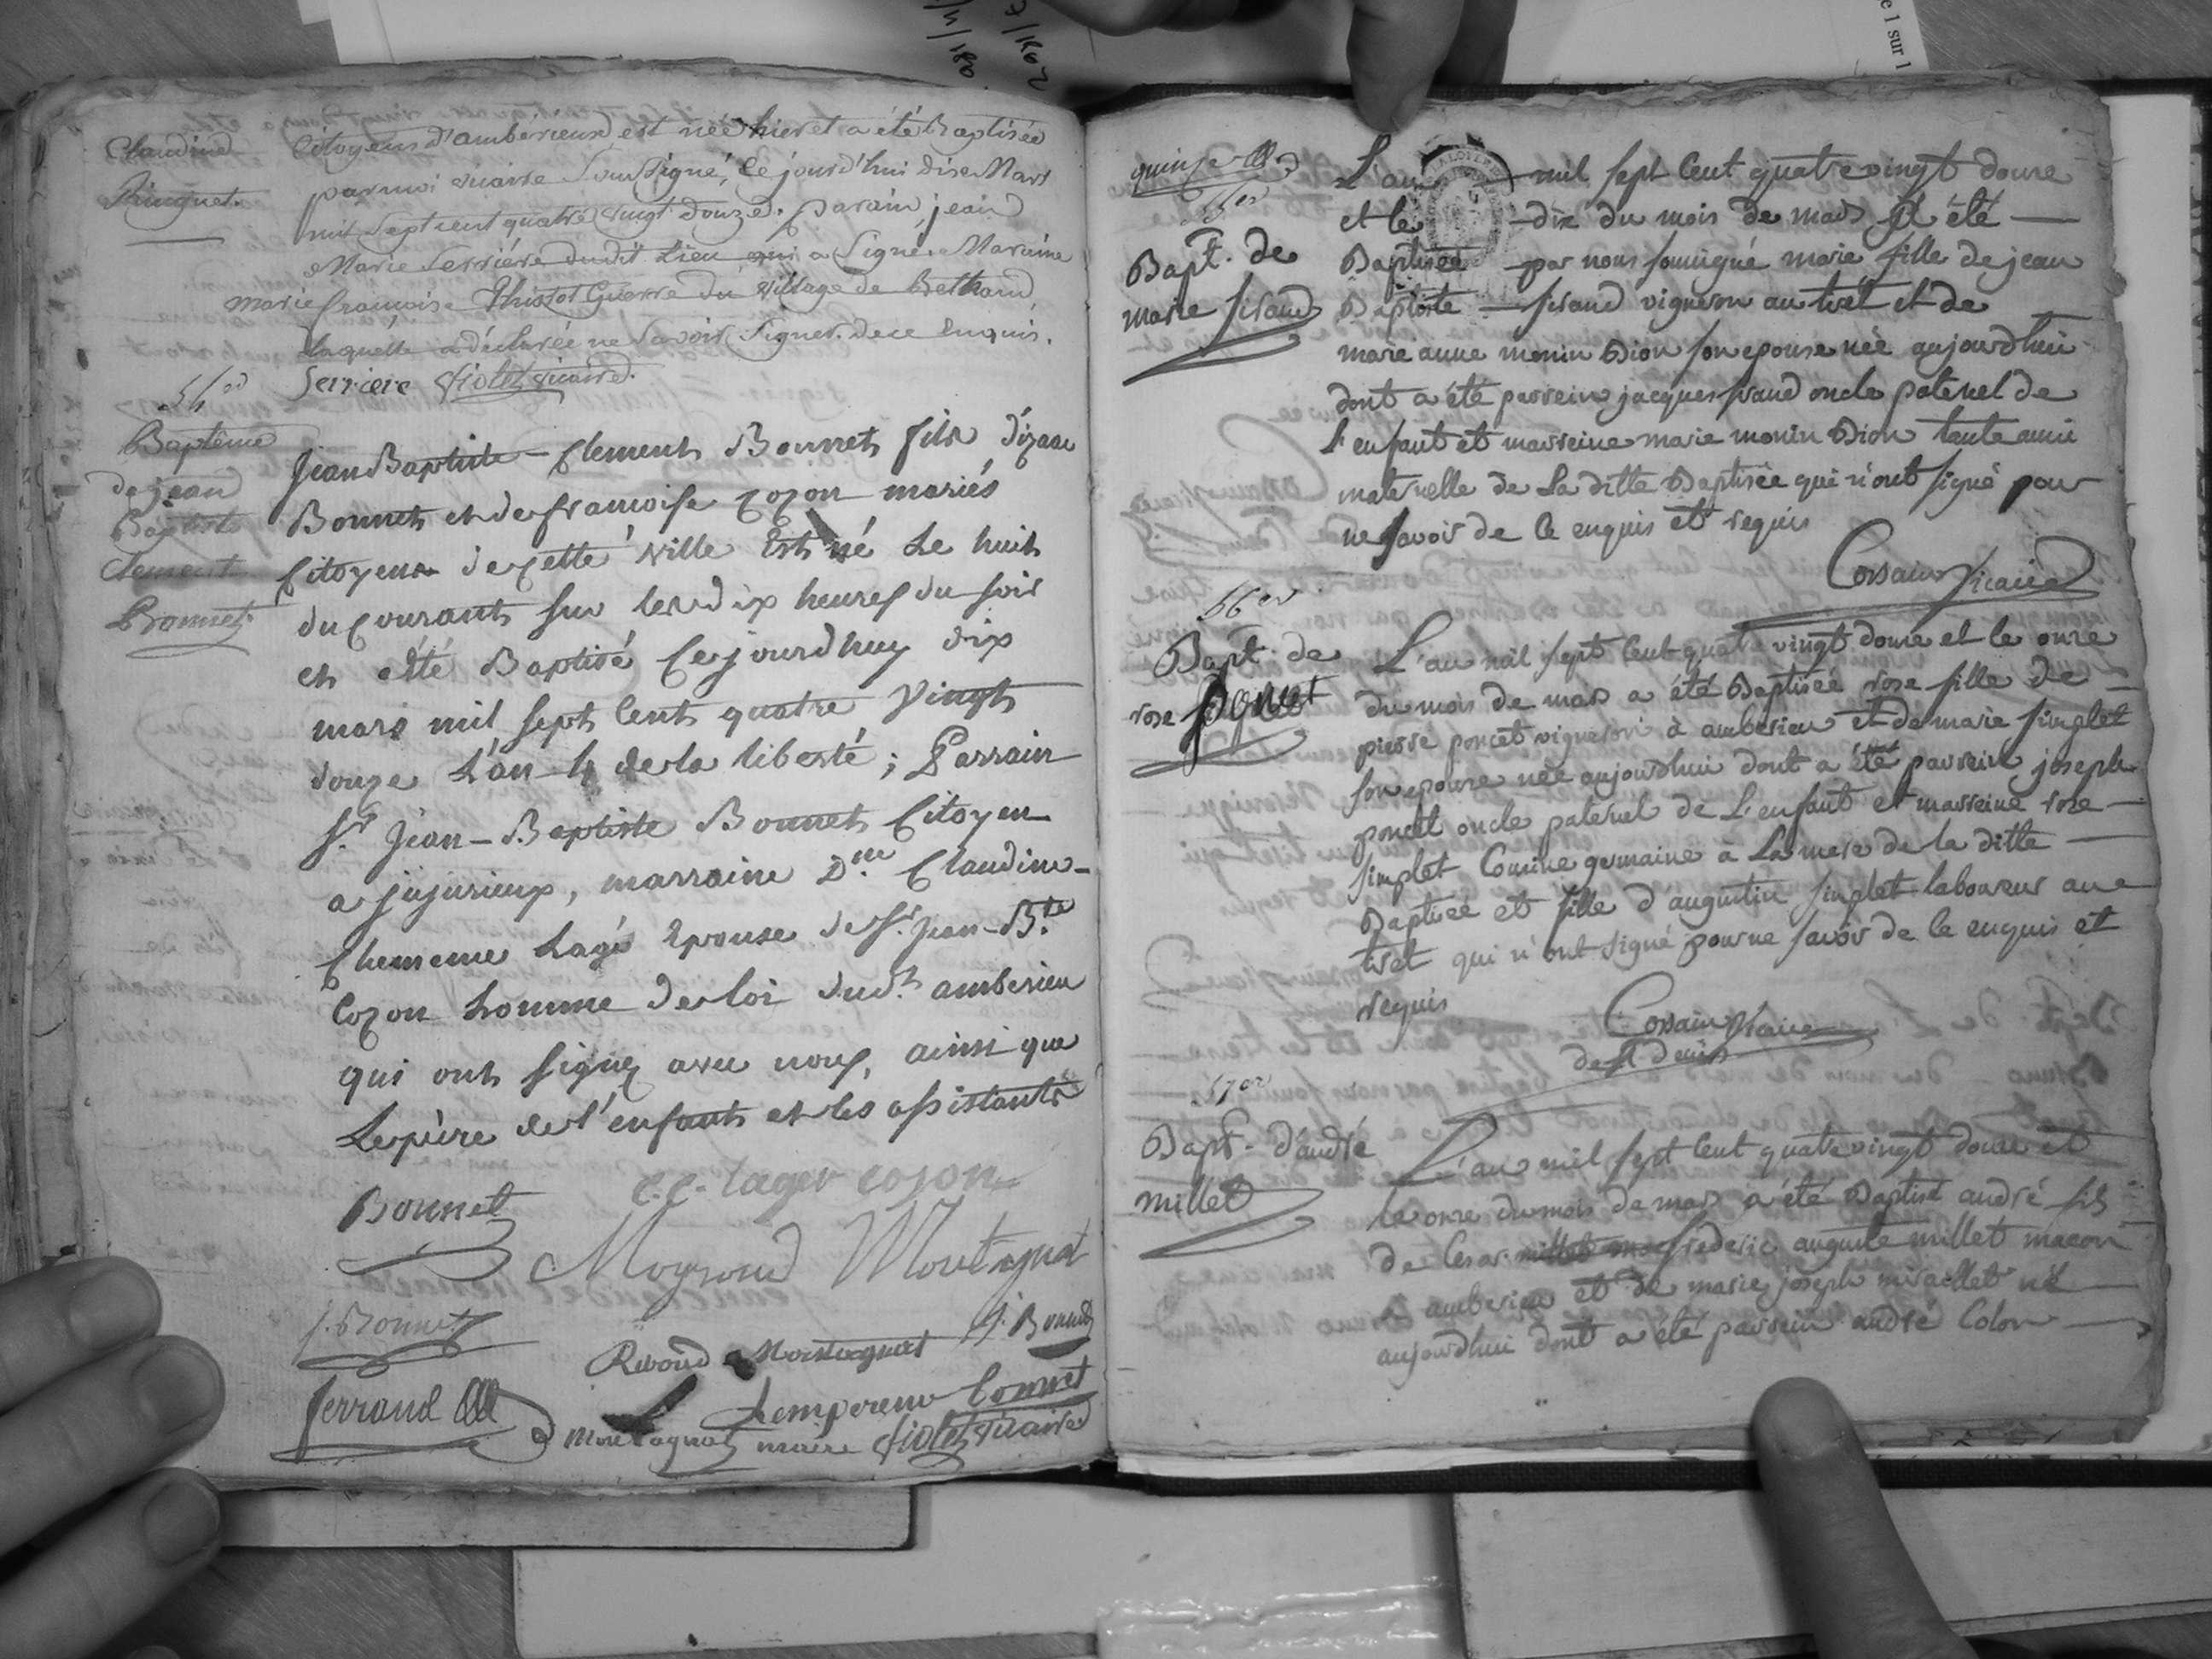 Claudine
Puignet.
Citoyens d'ambérieux est née hier et a été Baptisée
par moi vicaire Soussigné, Ce jourd'hui dix Mars
mil Sept cent quatre vingt douze. parain jean
Marie Serriére dudit Lieu qui a Signé. Maraine
marie francoise du village de Bettand
Laquelle a déclarée ne Savoir Signer. de ce enquis.
Serriere violet vicaire.
54er
Baptême
de jean
Baptiste
Clement
Bonnet.
Jean Baptiste - Clement Bonnet fils d'izaac
Bonnet et de francoise Cozon mariés
Citoyens de cette ville Est né Le huit
du Courant sur les dix heures du soir
et a été Baptisé Cejourdhuy dix
mars mil sept Cent quatre vingt
douze L'an 4 de la liberté ; Parrain
Sr. Jean - Baptiste Bonnet Citoyen
a jujurieux, marraine De. Claudine
Lagé Epouse de Sr. Jean - Bte
Cozon homme de loi dudt. amberieu
qui ont signé avec nous, ainsi que
Le père de l'enfant et les assistants
Bonnet
c.c. lager cozon
Montagnat
j. Bonnet
Rivoud Montagnat
j. Bonnet
Serrand
Lempereur Bonnet
Montagnat maire violet vicaire
quinze
55er
Bapt. de
marie sirand
L'an mil sept Cent quatre vingt douze
et le dix du mois de mars a été
Baptisée par nous soussigné marie fille de jean
Baptiste sirand vigneron au tiret et de
marie anne monin Dion son epouse née aujourdhui
dont a été parrein jacques sirand oncle paternel de
L'enfant et marreine marie monin Dion tante aussi
maternelle de La ditte Baptisée qui n'ont signé pour
ne savoir de ce enquis et requis
Cossain vicaire
56er
Bapt. de
rose poncet
L'an mil sept Cent quatre vingt douze et le onze
du mois de mars a été Baptisée rose fille de
pierre poncet vigneron à amberieu et de marie simplet
son epouse née aujourdhui dont a été parrein joseph
poncet oncle paternel de L'enfant et marreine rose
simplet Cousine germaine à La mere de la ditte
Baptisée et fille d'augustin simplet laboureur au
tiret qui n'ont signé pour ne savoir de ce enquis et
requis
Cossain vicaire
de St denis
57er
Bapt. d'andré
millet
L'an mil sept Cent quatre vingt douze et
le onze du mois de mars a été Baptisé andré fils
de Cesar frederic auguste millet macon
à amberieu et de marie joseph né
aujourdhui dont a été parrein andré Colon